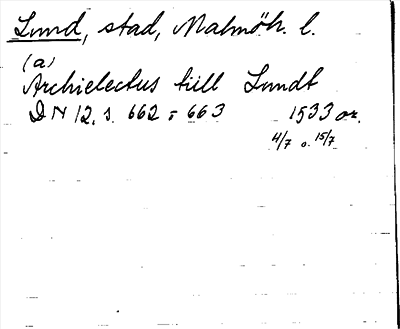 Lund, stad, Malmöh. l.
(a)
Archielectus till Lundt
DN 12, s. 662 - 663 1533 or.
4/7 o. 15/7